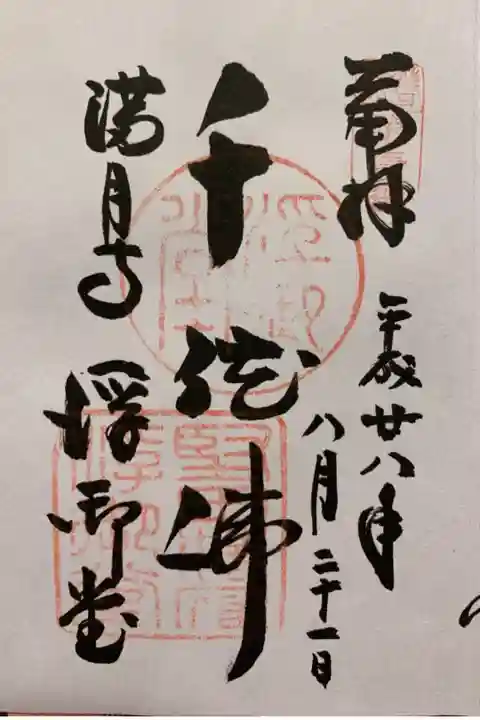 奉拝
平成廿八年
八月二十一日
千体佛
満月寺 浮御堂